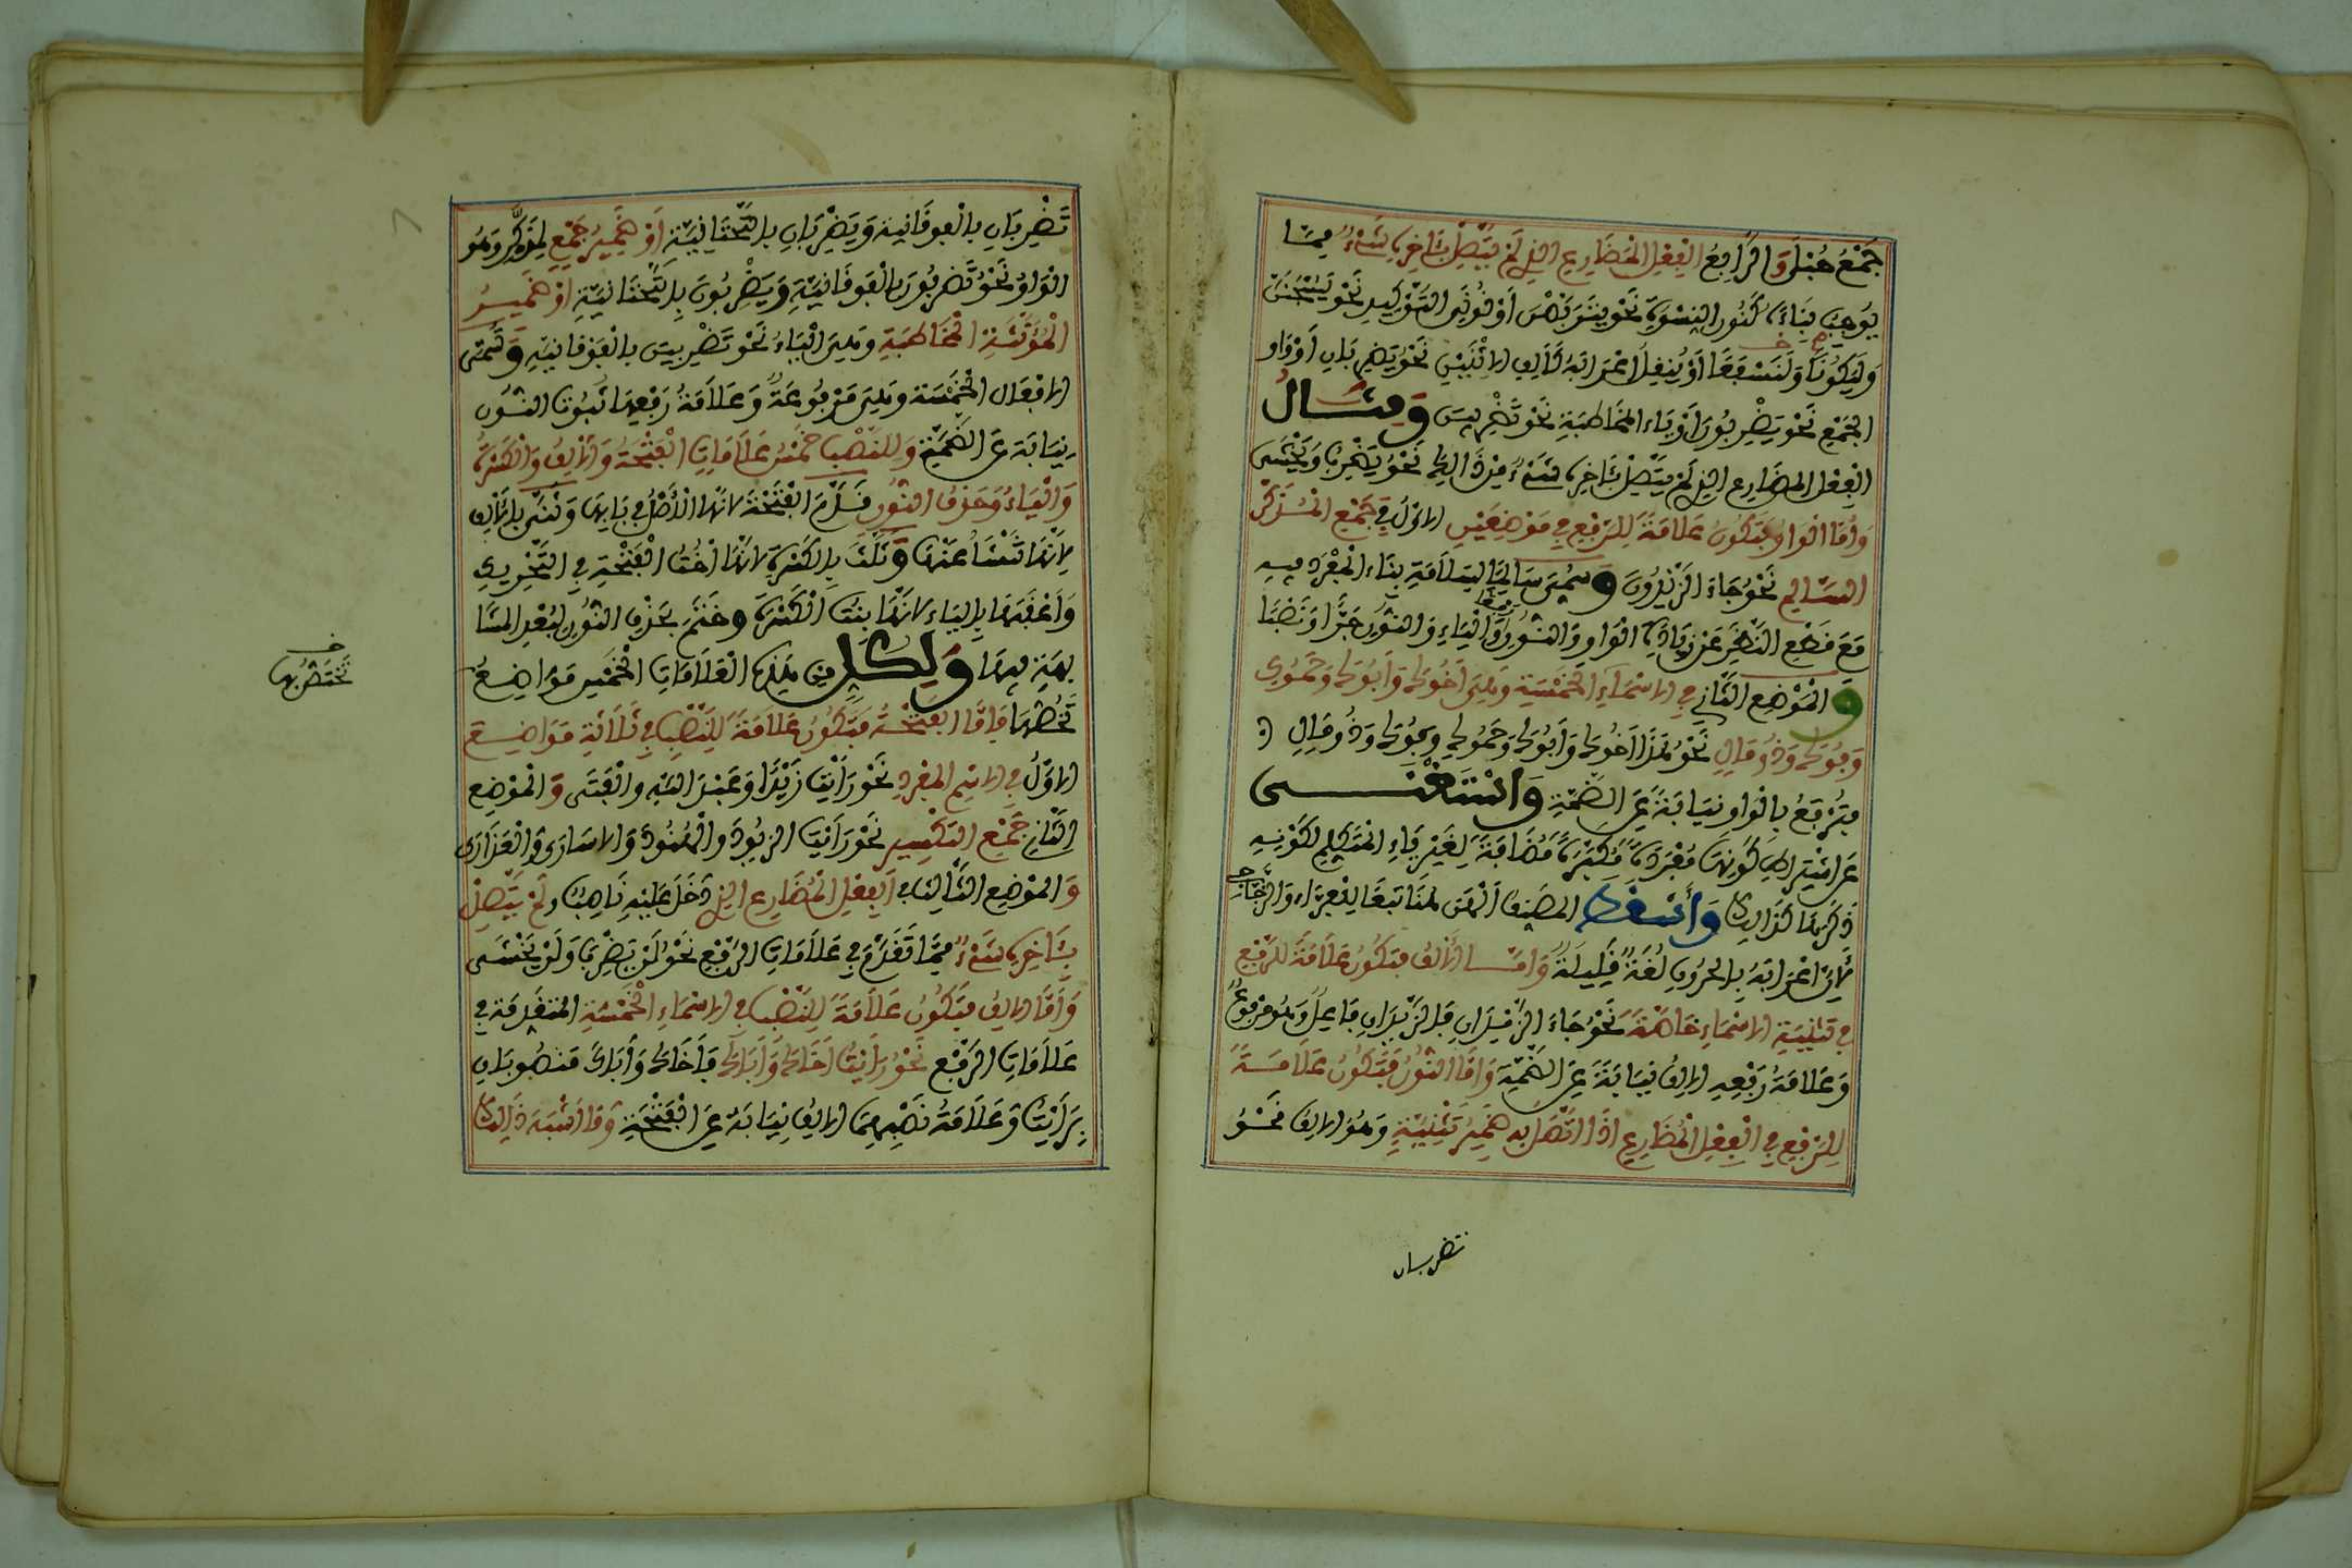 جَمْعُ حُبْلَى وَالرَّابِعُ الْفِعْلِ الْمُضَارِعِ الذِي لَمْ يَتَّصِلْ بِئَاخِرِهِ شَيْءٌ مِمَّا
يُوجِبُ بِنَاءَهُ كَنُونِ النِسْوَةِ نَحْوُ يَتَرَبَّصْنَ أَوْ نُونَيِ التَّوْكِيدِ نَحْوُ لَيُسْجَنَنَّ
وَلَيَكُونًا وَلَنَسْفَعًا أَوْ يُنْقِلُ إعْرَابَهُ كَأَلِفِ الاثْنَيْنِ نَحْوُ يَضْرِبَانِ أَوْ وَاوِ
الْجَمْعِ نَحْوُ يَضْرِبُونَ أَوْ يَاءِ المُخَاطَبَةِ نَحْوُ تَضْرِبِينَ وَمِثَالُ
الْفِعْلِ المضَارِعِ الذِي لَمْ يَتَّصِلْ بِئَاخِرِهِ شَيْءٌ مِنْ ذَالِكَ نَحْوُ يَضْرِبُ وَيَخْشَى
وَأَمَّا الْوَاوُ فَتَكُونُ عَلَامَةً لِلرَّفْعِ فِي مَوْضِعَيْنِ الاوَّلُ فِي جَمْعِ الْمُذَكَّرِ
السَّالِمِ نَحْوُ جَاءَ الزَّيْدُونَ وَسُمِّيَ سَالِمًا لِسَلَامَةِ بِنَاءِ الْمُفْرَدِ فِيهِ
مَعَ قَطْعِ النَّظَرِ عَنْ زِيَادَةِ الْوَاوِ وَالنُّونِ رَفْعًا وَالْيَاءِ وَالنُّونِ جَرًّا وَنَصْبًا
وَالْمَوْضِعِ الثَّانِي فِي الاسْمَاءِ الْخَمْسَةِ وَهِيَ أَخُوكَ وَأَبُوكَ وَحَمُوكِ
وَفُوكَ وَذُو مَالٍ نَحْوُ هَذَا أَخُوكَ وَأَبُوكَ وَحَمُوكِ وَفُوكَ وَذُو مَالٍ
فَتُرْفَعُ بِالْوَاوِ نِيَابَةً عَنِ الضَّمَّةِ وَاسْتَغْنَى
عَنِ اشْتِرَاطِ كَوْنِهَا مُفْرَدَةً مُكَبَّرَةً مُضَافَةً لِغَيْرِ يَاءِ الْمُتَكَلِّمِ لِكَوْنِهِ
ذَكَرَهَا كَذَالِكَ وَأَسْقَطَ المصَنِّفُ الْهَنَ لِمُتَابَعَةِ الْفَرَّاءِ وَالزَّجَّاجِ
لِأَنَّ إعْرَابَهُ بِالْحُرُوفِ لُغَةٌ قَلِيلَةٌ وَأَمَّا الْأَلِفُ فَتَكُونُ عَلَامَةً لِلرَّفْعِ
فِي تَثْنِيَةِ الاسْمَاءِ خَاصَّةً نَحْوُ جَاءَ الزَّيْدَانِ فَالزَّيْدَانِ فَاعِلٌ وَهُوَ مَرْفُوعٌ
وَعَلَامَةُ رَفْعِهِ الالِفُ نِيَابَةً عَنِ الضَّمَّةِ وَأَمَّا النُّونُ فَتَكُونُ عَلَامَةً
لِلرَّفْعِ فِي الْفِعْلِ الْمُضَارِعِ إذَا اتَّصَلَ بِهِ ضَمِيرُ تَثْنِيَةٍ وَهُوَ الالِفُ نَحْوُ
تضربان
تَضْرِبَانِ بِالْفَوْقَانِيَةِ وَيَضْرِبَانِ بِالتَّحْتَانِيَّةِ أَوْ ضَمِيرُ جَمْعِ لِمُذَكَّرٍ وَهُو
الْوَاوُ نَحْوُ تَضْرِبُونَ بِالْفَوْقَانِيَّةِ وَيَضْرِبُونَ بِالتَّحْتَانِيَّةِ أوْ ضَمِيرُ
الْمُؤَنَّثَةِ الْمُخَاطَبَةِ وَهِيَ الْيَاءُ نَحْوُ تَضْرِبِينَ بِالْفَوْقَانِيَّةِ وَتُسَمَّى
الافْعَالِ الْخَمْسَةَ وَهِيَ مَرْفُوعَةٌ وَعَلَامَةُ رَفْعِهَا ثُبُوتُ النُّونِ
نِيَابَةً عَنِ الضَّمَّةِ وَلِلنَّصْبِ خَمْسُ عَلَامَاتٍ الْفَتْحَةُ وَالْأَلِفُ وَالْكَسْرَةُ
وَالْيَاءُ وَحَذْفُ النُّونِ فَقَدَّمَ الْفَتْحَةَ لانَّهَا الْأَصْلُ فِي بَابِهَا وَثَنَّى بِالْأَلِفِ
لِأَنَّهَا تَنْشَأُ عَنْهَا وَثَلَّثَ بِالْكَسْرَةِ لانَّهَا أُخْتُ الْفَتْحَةِ فِي التَّحْرِيكِ
وَأَعْقَبَهَا بِالْيَاءِ لانَّهَا بِنْتُ الْكَسْرَةِ وَخَتَمَ بِحَذْفِ النُّونِ لِبُعْدِ المشَا
بَهَةِ فِيهَا وَلِكُلٍّ مِنْ هَذِهِ الْعَلَامَاتِ الْخَمْسِ مَوَاضِعُ
تَخُصُّهَا فَأَمَّا الْفَتْحَةُ فَتَكُونُ عَلَامَةً لِلنَّصْبِ فِي ثَلَاثَةِ مَوَاضِعَ
الاوَّلُ فِي الاسْمِ الْمُفْرَدِ نَحْوُ رَأَيْتُ زَيْدًا وَعَبْدَ اللَّهِ وَالْفَتَى وَالْمَوْضِعِ
الثَّانِي جَمْعِ التَّكْسِيرِ نَحْوُ رَأَيْتُ الزُّيُودَ وَالْهُنُودَ وَالاسَارَى وَالْعَذَارَى
وَالْمَوْضِعِ الثَّالِثِ الْفِعْلِ الْمُضَارِعِ الذِي دَخَلَ عَلَيْهِ نَاصِبٌ وَلَمْ يَتَّصِلْ
بِئَاخِرِهِ شَيْءٌ مِمَّا تَقَدَّمَ فِي عَلَامَاتِ الرَّفْعِ نَحْوُ لَنْ يَضْرِبَ وَلَنْ يَخْشَى
وَأَمَّا الالِفُ فَتَكُونُ عَلَامَةً لِلنَّصْبِ فِي الاسْمَاءِ الْخَمْسَةِ الْمُتَقَدِّمَةِ فِي
عَلَامَاتِ الرَّفْعِ نَحْوُ رَأَيْتُ أَخَاكَ وَأَبَاكَ فَأَخَاكَ وَأَبَاكَ مَنْصُوبَانِ
بِرَأَيْتُ وَعَلَامَةُ نَصْبِهِمَا الالِفُ نِيَابَةً عَنِ الْفَتْحَةِ وَمَا أَشْبَهَ ذَالِكَ
تَخْتَصُّ بِهَا